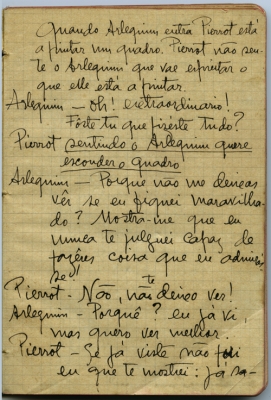 Quando Arlequim entra Pierrot está
a pintar um quadro. Pierrot não sen-
te o Arlequim que vae espreitar o
que elle está a pintar.
Arlequim — Oh! extraordinario!
Fôste tu que fizeste tudo?
Pierrot sentindo o Arlequim quere
esconder o quadro
Arlequim — Porquê não me deixas
vêr se eu fiquei maravilha-
do? Mostra-me que eu
nunca te julguei capaz de
fazeres coisa que eu admiras-
se!!
Pierrot — Não, não te deixo ver!
Arlequim — Porquê? eu já vi,
mas quero ver melhor.
Pierrot — Se já viste não foi
eu que te mostrei: já sa-